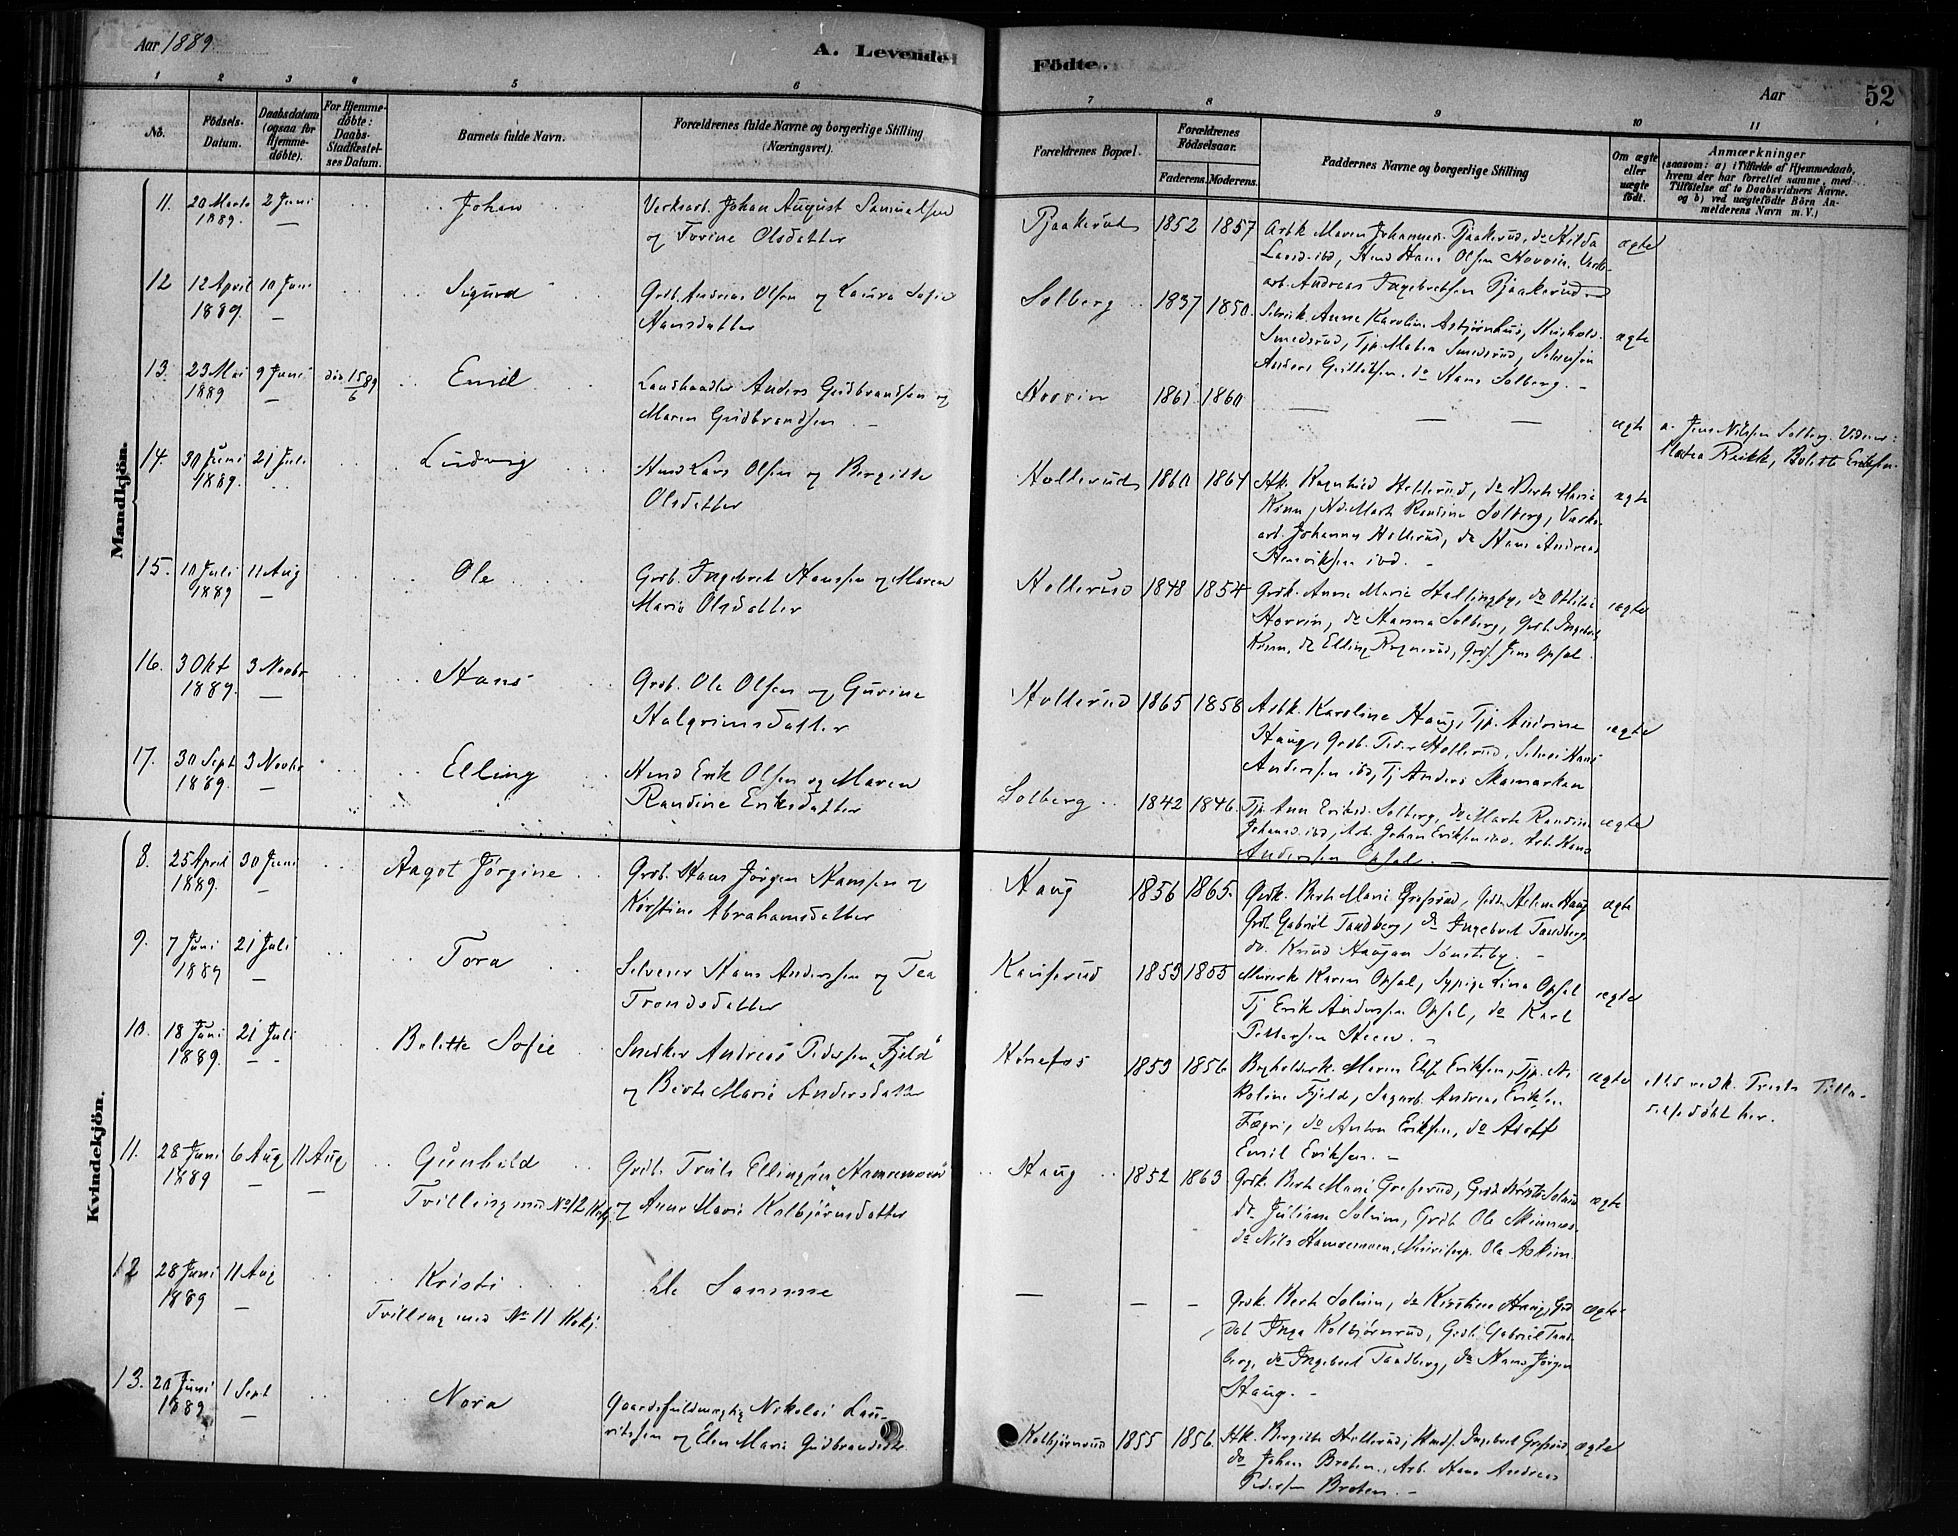 Aar 1889.
A. Levende
Födte.
Aar
52
1 2 3 4 5 6
7 8 9 10 11
No.
Födsels-
Datum.
Daabsdatum
(ogsaa for
Hjemme-
døbte).
For Hjemme-
døbte:
Daabs-
Stadfæstel-
ses Datum.
Barnets fulde Navn.
Forældrenes fulde Navne og borgerlige Stilling
(Næringsvei).
Forældrenes Bopæl.
Forældrenes
Födselsaar.
Faderens. Moderens.
Faddernes Navne og borgerlige Stilling
Om ægte
eller
uægte
födt.
Anmærkninger
(saasom: a) i Tilfælde af Hjemmedaab,
hvem der har forrettet samme, med
Tilföielse af to Daabsvidners Navne.
og b) ved uægtefödte Börn An-
melderens Navn m. V.)
Mandkjön.
11. 20 Marts 2 Juni Johan Verksarb. Johan August Samuelsen
1889. — og Torine Olsdatter
Tjaakerud 1852 1857 Arbk Maren Johannesd. Tjaakerud, do Hilda
Larsd. ibd, Hmd Hans Olsen Hovrin, Verks-
arb. Andreas Ingebretsen Tjaakerud
ægte
12 12 April 10 Juni Sigurd Grdb. Andreas Olsen og Laura Sofie
1889. — Hansdatter
Solberg 1837 1850. Selveierk. Anne Karoline Asbjørnhus,
Smedsrud, Tjp. Matea Smedsrud, Selveiersøn
Anders Gulliksen, do Hans Solberg. —
ægte
13. 23 Mai 9 Juni død 15/6 89 Emil Landhandler Anders Gudbrandsen og
1889 — Maren Gudbrandsen —
Hovrin 1861 1860 — — — ægte
a. Jens Nilssen Solberg. Vidner:
Matea Rækk, Bolette Eriksen
14. 30 Juni 21 Juli Ludvig Hmd Lars Olsen og Bergitte
1889. Olsdatter
Hollerud 1860 1864 Hk. Ragnhild Hollerud, do Berte Marie
Kinn, Marte Randine Solberg, Verks-
arb. Johannes Hollerud, do Hans Andreas
Henriksen ibd. —
ægte
15. 10 Juli 11 Aug Ole Grdb. Ingebret Hansen og Maren
1889 — Marie Olsdatter
Hollerud 1848 1854 Grdk. Anne Marie Hallingby, do Ottilie
Hovrin, do Hanna Solberg, Grdb. Ingebret
Kinn, do Elling Ragnerud, Grds. Jens Opsal
ægte
16. 3 Okt 3 Novbr Hans Grdb. Ole Olsen og Gurine
1889. — Halgrimsdatter
Hollerud 1865 1858 Arbk. Karoline Haug, Tjp. Andrine
Haug, Grdb. Peder Hollerud, Selvei Hans
Andersen ibd, Tj Anders Skamarken
ægte
17. 30 Sept 3 Novbr Elling Hmd Erik Olsen og Maren
1889. — Randine Eriksdatter
Solberg 1842 1846. Tjp. Ann Eriksd. Solberg, do Marte Randine
Johansd. ibd, Arb. Johan Eriksen ibd. Arb. Hans
Andersen Opsal. —
ægte
Kvindekjön.
8. 25 April 30 Juni Aagot Jørgine Grdb. Hans Jørgen Hansen og
1889. — Kirstine Abrahamsdatter
Haug 1856 1865. Grdk. Berte Marie Grefsrud, Grdk Helene Haug
Grdb Gabriel Tandberg, do Ingebret Tandberg,
do. Knud Haugan Sønsteby. —
ægte
9. 7 Juni 21 Juli Tora Selveier Hans Andersen og Tea
1889 — Trondsdatter
Kauserud 1853 1855 Murerk Karen Opsal, Sypige Lina Opsal
Tj Erik Andersen Opsal, do Karl
Pettersen Heen. —
ægte
10. 18 Juni 21 Juli Bolette Sofie Snedker Andreas Pedersen "Fjeld"
1889. — og Berte Marie Andersdatter
Hønefos 1853 1856. Maren Elise Eriksen, Tjp. Ni-
koline Fjeld, Sagarb. Andreas Eriksen
Fægri, do Anton Eriksen, do Adolf
Emil Eriksen. —
ægte Med vedk. Prests Tilla-
delse døbt her.
11. 28 Juni 6 Aug 11 Aug Gunhild Grdb. Truls Ellingsen Hamremoen
1889 — — Tvilling med No 12 Kvkj. og Anne Marie Kolbjørnsdatter
Haug 1852 1863 Grdk. Berte Marie Grefsrud, Grdk Kirsti Solum
do Juliane Solum, Grdb Ole Skinnes
do Nils Hamremoen, Ole Askim.
ægte
12 28 Juni 11 Aug Kristi De Samme
1889 — Tvilling med No 11 Kvkj.
— — — Grdk. Berte Solum, do Kirstine Haug, Grd
dat Inga Kolbjørnrud, Grdb. Gabriel Tand-
berg, do Ingebret Tandberg, do Hans Jørgen
Haug. —
ægte
13. 20 Juni 1 Sept Nora Gaardsfuldmægtig Nikolai Lau-
1889 — ritssen og Elen Marie Gudbrandsdtr
Kolbjørnrud 1855 1856. Hk. Bergitte Hollerud, Hmds. Ingebret Grefsrud
do Johan Braten, Arb. Hans Andreas
Pedersen Braten. —
ægte